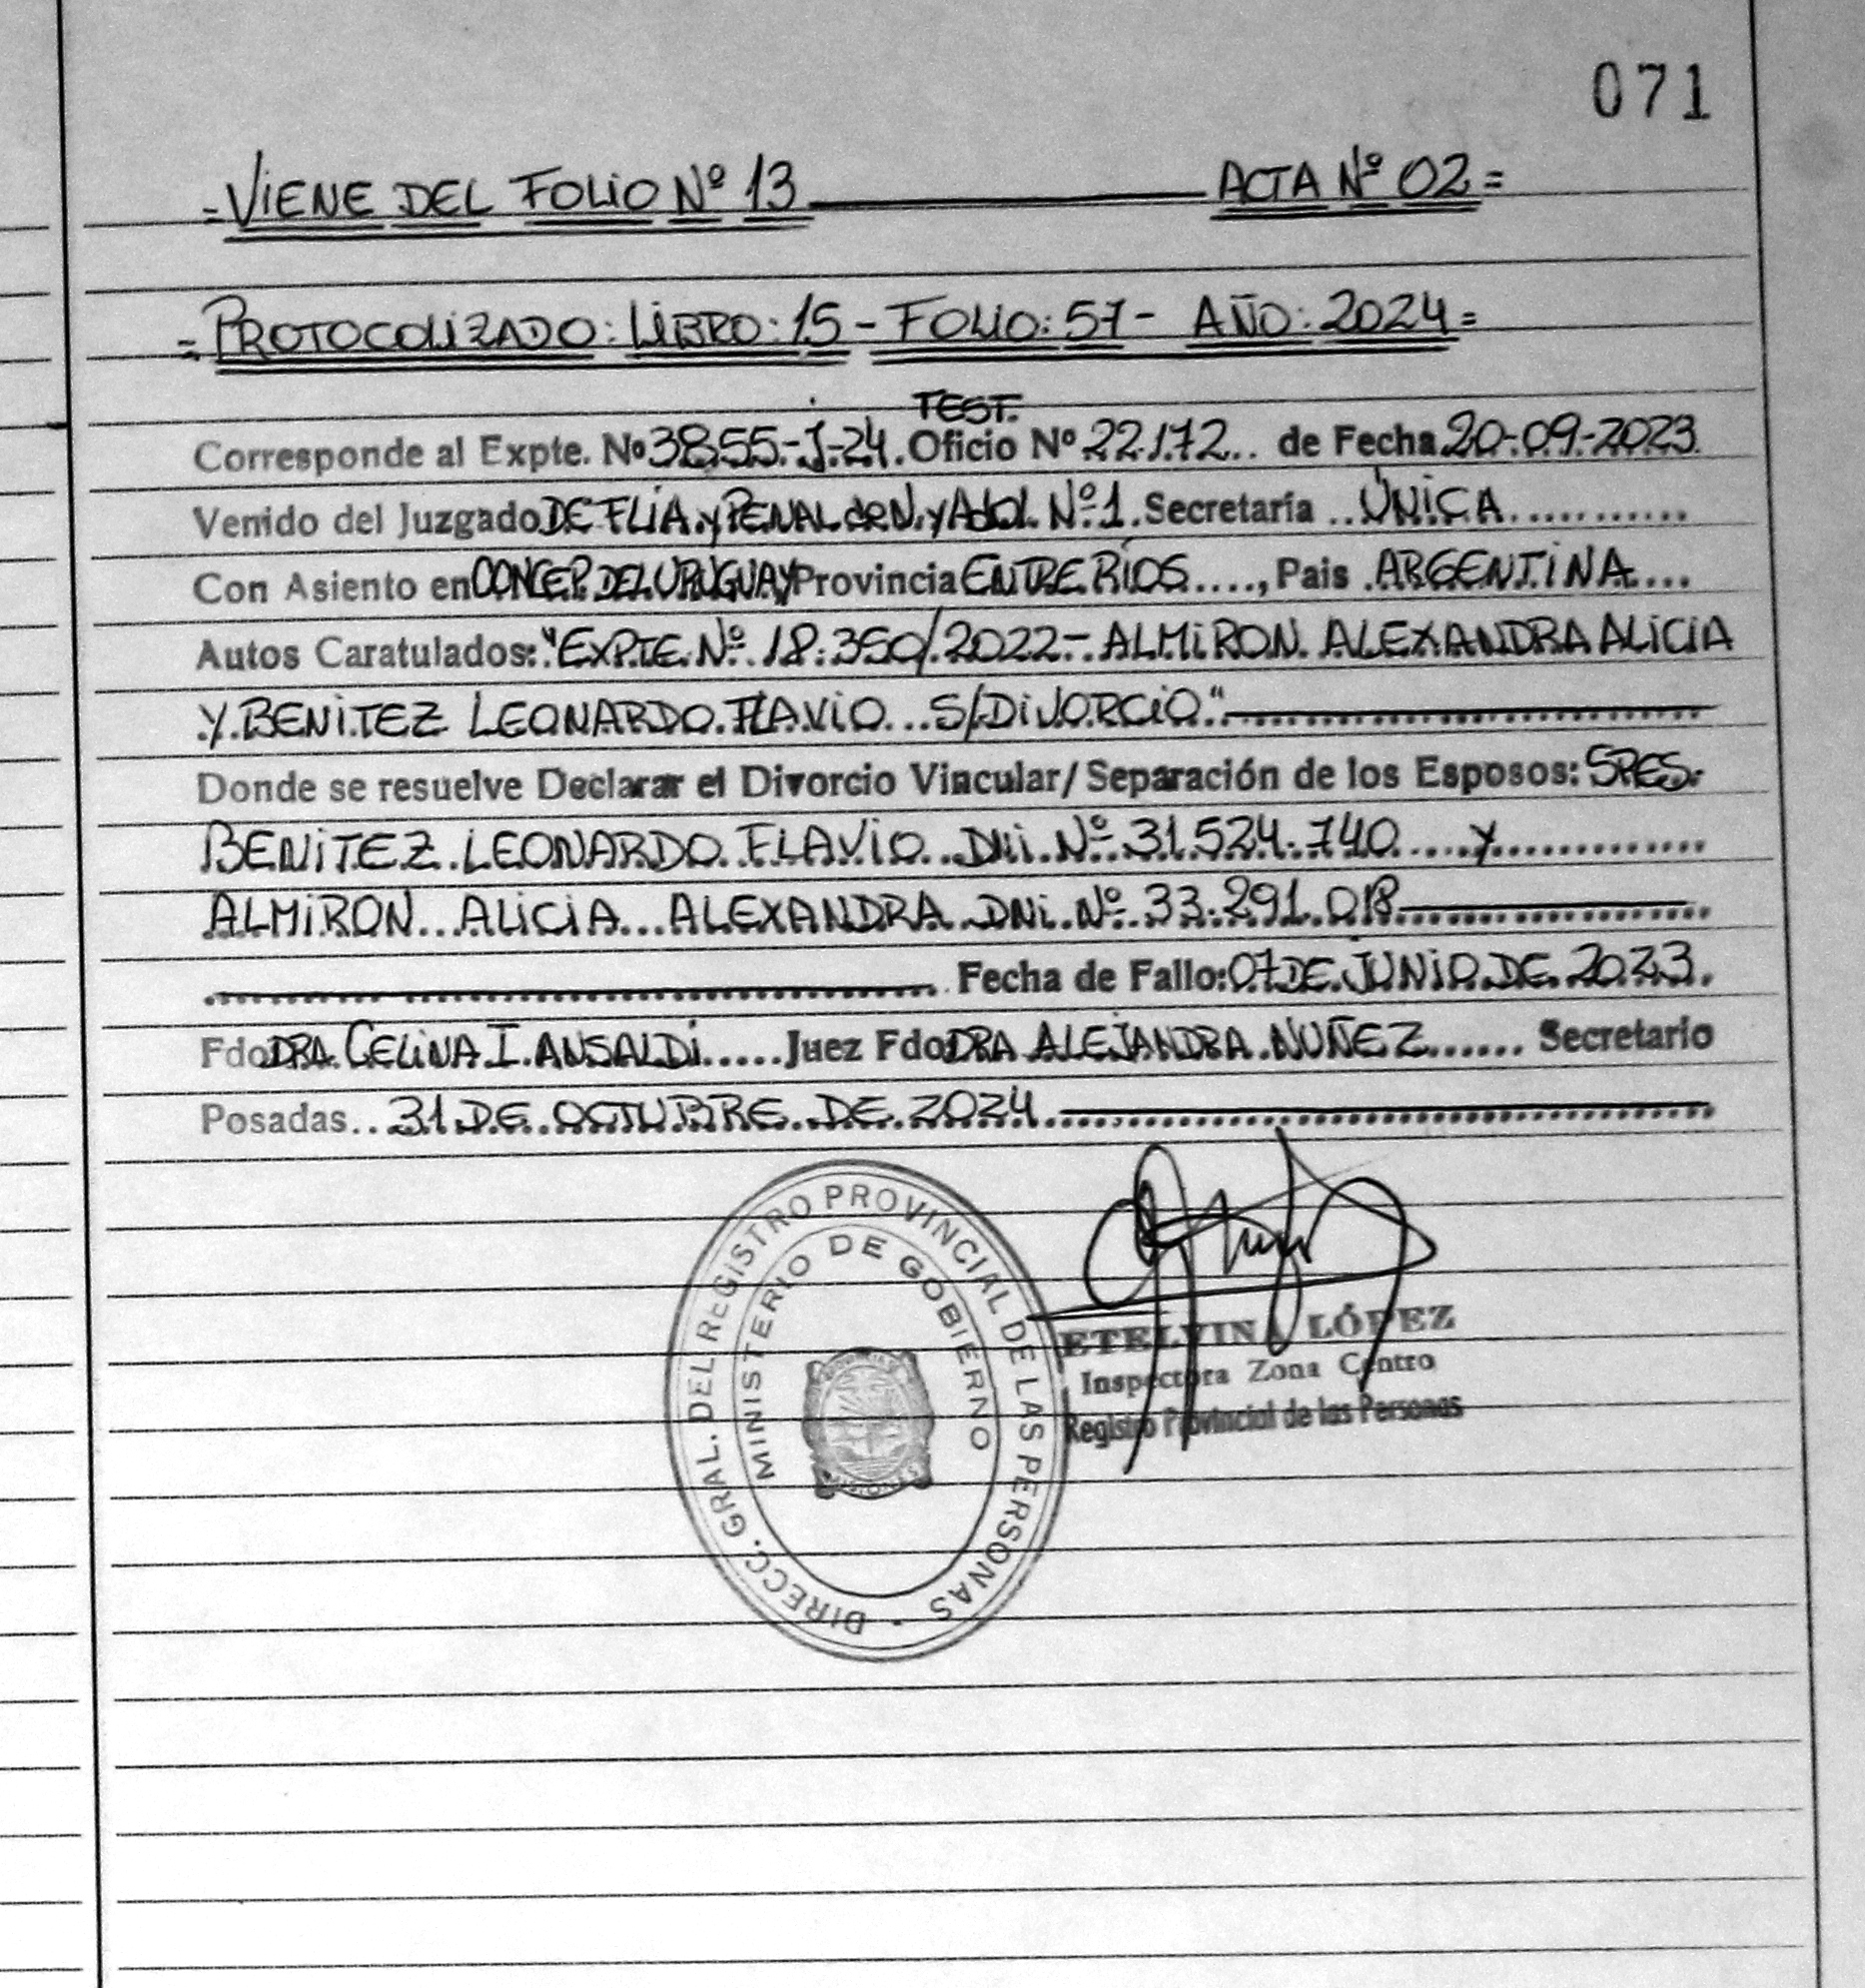 071
=VIENE DEL FOLIO Nº 13 ACTA Nº 02=
=PROTOCOLIZADO: LIBRO: 15 - FOLIO: 57 - AÑO: 2024=
TEST.
Corresponde al Expte. Nº 3855-J-24. Oficio Nº 22.172.. de Fecha 20-09-2023.
Venido del Juzgado DE FLIA. y PENAL de N. y Adol. Nº 1. Secretaría ..ÚNICA............
Con Asiento en CONCEP. DEL URUGUAY Provincia ENTRE RÍOS...., Pais .ARGENTINA....
Autos Caratulados: "EXPTE. Nº 18.350/2022- ALMIRON ALEXANDRA ALICIA
Y BENITEZ LEONARDO FLAVIO... S/DIVORCIO."
Donde se resuelve Declarar el Divorcio Vincular/ Separación de los Esposos: SRES.
BENITEZ LEONARDO FLAVIO DNI. Nº 31.524.740....y.............
ALMIRON... ALICIA... ALEXANDRA DNI. Nº 33.291.018
Fecha de Fallo: 07 DE JUNIO DE 2023.
Fdo DRA. CELINA I. ANSALDI.....Juez Fdo DRA ALEJANDRA NUÑEZ...... Secretario
Posadas.. 31 DE OCTUBRE DE 2024
DIRECC. GRAL. DEL REGISTRO PROVINCIAL DE LAS PERSONAS
MINISTERIO DE GOBIERNO
MISIONES
ETELVINA LÓPEZ
Inspectora Zona Centro
Registro Provincial de las Personas